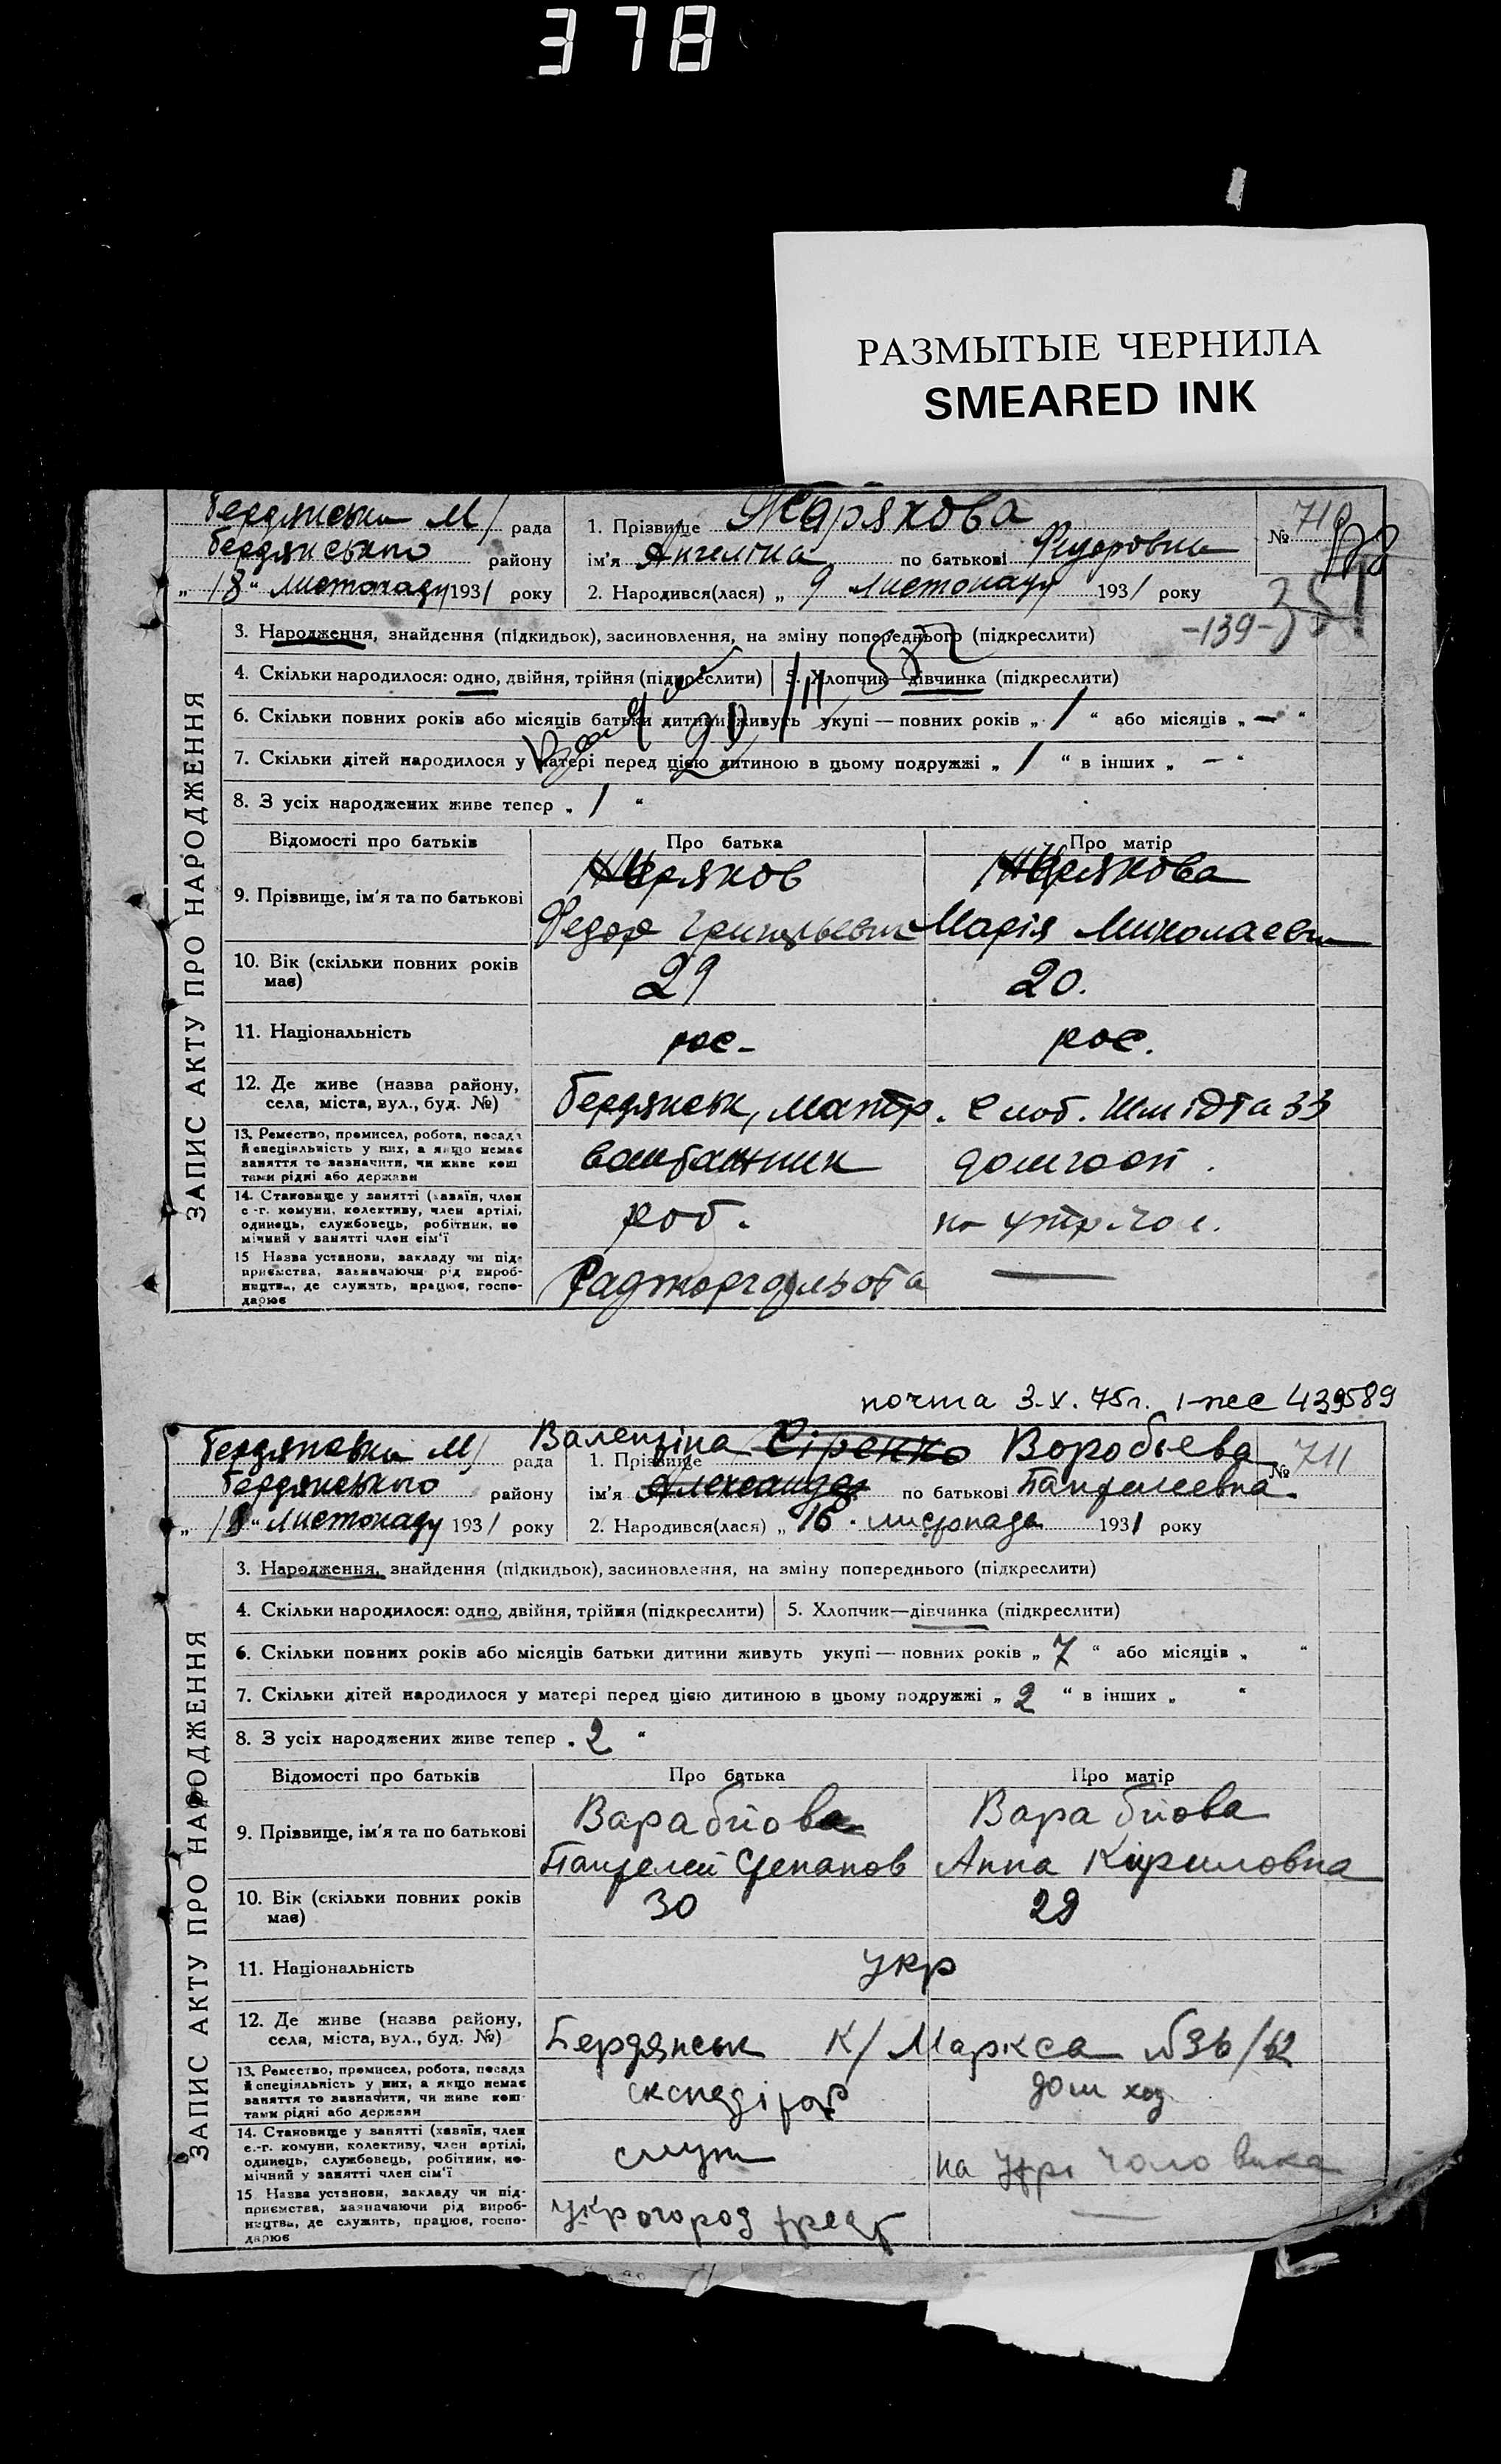 378
РАЗМЫТЫЕ ЧЕРНИЛА
SMEARED INK
ЗАПИС АКТУ ПРО НАРОДЖЕННЯ
Бердянська М/ рада
Бердянського району
„18“ листопаду 1931 року
1. Прізвище
ім'я Ангеліна по батькові
2. Народився(лася) „ 9 листопаду 1931 року
№ 710
-139-
3. Народження, знайдення (підкидьок), засиновлення, на зміну попереднього (підкреслити)
4. Скільки народилося: одно, двійня, трійня (підкреслити) 5. Хлопчик—дівчинка (підкреслити)
6. Скільки повних років або місяців батьки дитини живуть укупі — повних років „ 1 “ або місяців „ — “
7. Скільки дітей народилося у матері перед цією дитиною в цьому подружжі „ 1 “ в інших „ — “
8. З усіх народжених живе тепер „ 1 “
Відомості про батьків Про батька Про матір
9. Прізвище, ім'я та по батькові
Федор Марія
10. Вік (скільки повних років має) 29 20.
11. Національність рос- рос.
12. Де живе (назва району, села, міста, вул., буд. №)
Бердянськ, матр. Слоб. Шмідта 33
13. Ремество, промисел, робота, посада й спеціяльність у них, а якщо немає заняття то зазначити, чи живе кош тами рідні або держави
14. Становище у занятті (хазяїн, член с.-г. комуни, колективу, член артілі, одинець, службовець, робітник, помічний у занятті член сім'ї
роб.
15 Назва установи, закладу чи підприємства, зазначаючи рід виробництва, де служить, працює, господарює
почта 3.X.75г. 439589
ЗАПИС АКТУ ПРО НАРОДЖЕННЯ
Бердянська М/ рада
Бердянського району
„18“ листопаду 1931 року
Валентіна
1. Прізвище Сіренко Воробьева
ім'я Александра по батькові Пантелеевна
2. Народився(лася) „16. листопада 1931 року
№ 711
3. Народження, знайдення (підкидьок), засиновлення, на зміну попереднього (підкреслити)
4. Скільки народилося: одно, двійня, трійня (підкреслити) 5. Хлопчик—дівчинка (підкреслити)
6. Скільки повних років або місяців батьки дитини живуть укупі — повних років „ 7 “ або місяців „ “
7. Скільки дітей народилося у матері перед цією дитиною в цьому подружжі „ 2 “ в інших „ “
8. З усіх народжених живе тепер „ 2 “
Відомості про батьків Про батька Про матір
9. Прізвище, ім'я та по батькові
Варабйова Варабйова
Пантелей Степанов Анна Кириловна
10. Вік (скільки повних років має) 30 29
11. Національність укр
12. Де живе (назва району, села, міста, вул., буд. №)
Бердянськ К/Маркса №36/62
13. Ремество, промисел, робота, посада й спеціяльність у них, а якщо немає заняття то зазначити, чи живе кош тами рідні або держави
экспедітор дом хоз
14. Становище у занятті (хазяїн, член с.-г. комуни, колективу, член артілі, одинець, службовець, робітник, помічний у занятті член сім'ї
служ на утр. чоловика
15. Назва установи, закладу чи підприємства, зазначаючи рід виробництва, де служить, працює, господарює
—